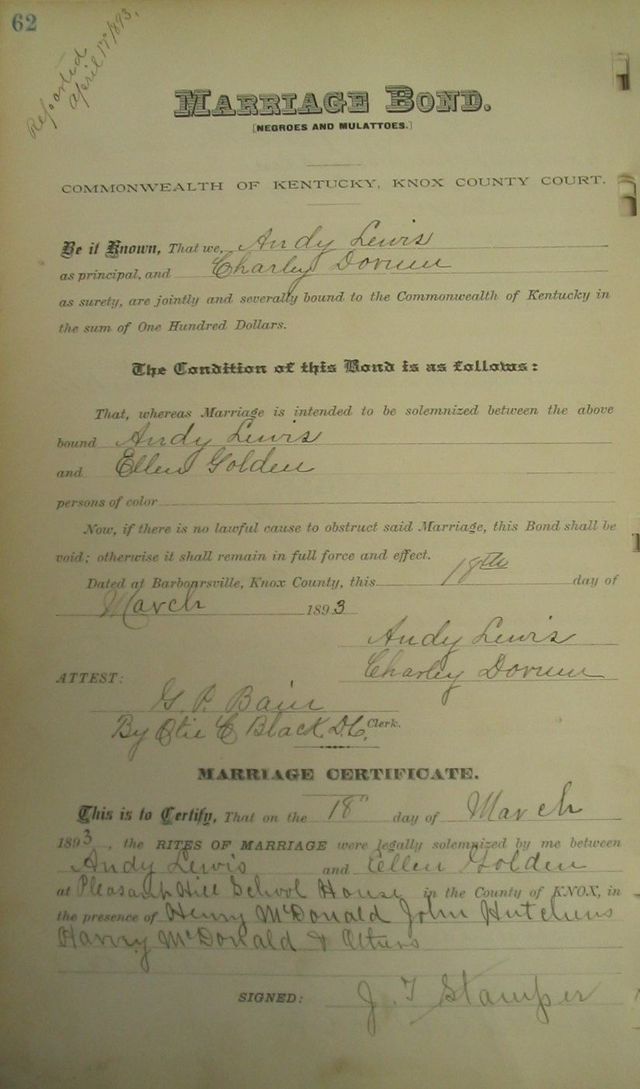 62
Reported
April 17th 1893.
MARRIAGE BOND.
[NEGROES AND MULATTOES.]
COMMONWEALTH OF KENTUCKY, KNOX COUNTY COURT.
Be it Known, That we, Andy Lewis
as principal, and Charley
as surety, are jointly and severally bound to the Commonwealth of Kentucky in
the sum of One Hundred Dollars.
The Condition of this Bond is as follows:
That, whereas Marriage is intended to be solemnized between the above
bound Andy Lewis
and Ellen Golden
persons of color
Now, if there is no lawful cause to obstruct said Marriage, this Bond shall be
void; otherwise it shall remain in full force and effect.
Dated at Barboursville, Knox County, this 18th day of
March 1893
Andy Lewis
Charley
ATTEST:
G. P. Bain
By C Black D.C. Clerk.
MARRIAGE CERTIFICATE.
This is to Certify, That on the 18" day of March
1893, the RITES OF MARRIAGE were legally solemnized by me between
Andy Lewis and Ellen Golden
at Pleasant Hill School House in the County of KNOX, in
the presence of Henry McDonald John Hutchens
Harvy McDonald & Others
SIGNED: J. T Stamper